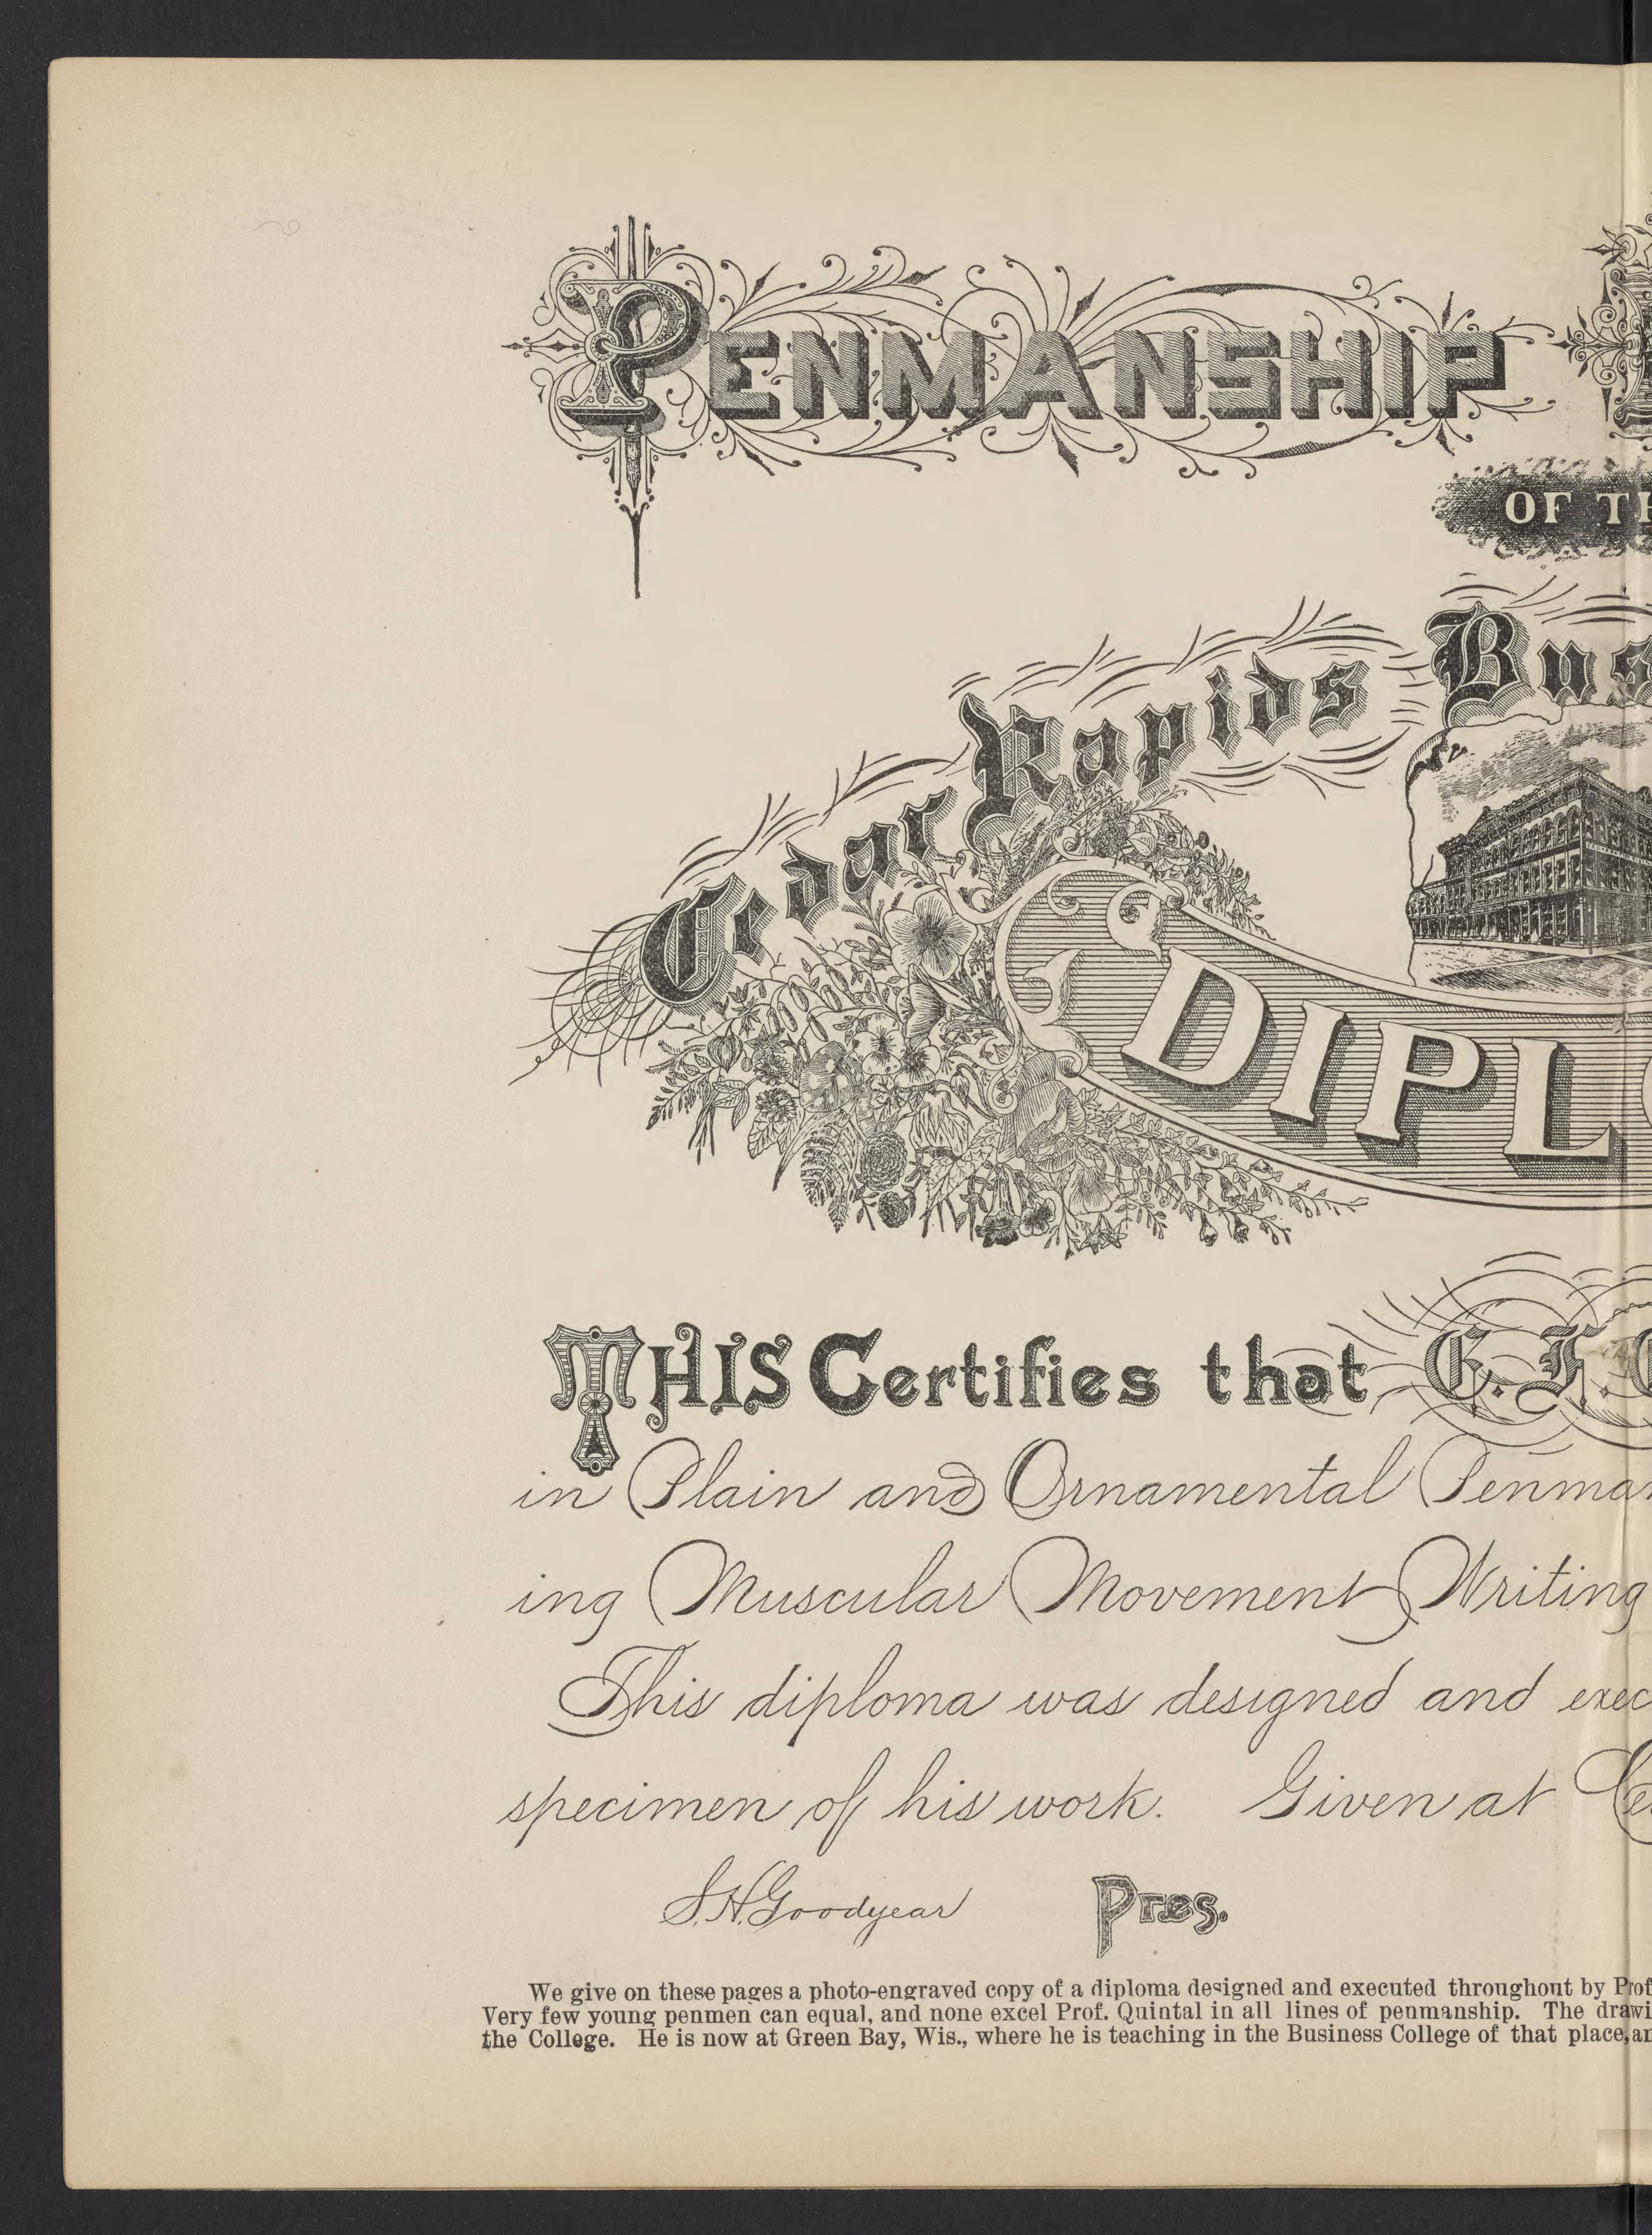 PENMANSHIP
OF TH
Cedar Rapids Bus
DIPLO
THIS Certifies that
in Plain and Ornamental Penman
ing Muscular Movement Writing
This diploma was designed and exec
specimen of his work. Given at Ce
S.H. Goodyear Pres.
We give on these pages a photo-engraved copy of a diploma designed and executed throughout by Prof
Very few young penmen can equal, and none excel Prof. Quintal in all lines of penmanship. The drawi
the College. He is now at Green Bay, Wis., where he is teaching in the Business College of that place, an